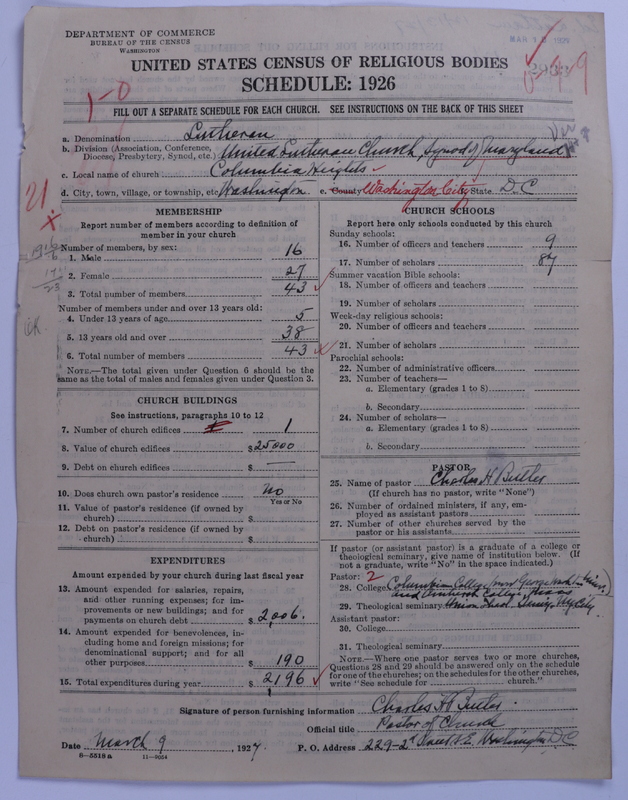 DEPARTMENT OF COMMERCE
BUREAU OF THE CENSUS
WASHINGTON
UNITED STATES CENSUS OF RELIGIOUS BODIES
SCHEDULE: 1926
1-0
FILL OUT A SEPARATE SCHEDULE FOR EACH CHURCH. SEE INSTRUCTIONS ON THE BACK OF THIS SHEET
a. Denomination Lutheran
b. Division (Association, Conference, Diocese, Presbytery, Synod, etc.) United Lutheran Church, Synod of Maryland
c. Local name of church Columbia Heights
d. City, town, village, or township, etc. Washington e. County Washington City State D.C
MEMBERSHIP
Report number of members according to definition of
member in your church
Number of members, by sex:
1. Male 16
2. Female 27
3. Total number of members 43
Number of members under and over 13 years old:
4. Under 13 years of age 5
5. 13 years old and over 38
6. Total number of members 43
NOTE.—The total given under Question 6 should be the
same as the total of males and females given under Question 3.
CHURCH BUILDINGS
See instructions, paragraphs 10 to 12
7. Number of church edifices 1
8. Value of church edifices $25000
9. Debt on church edifices $ —
10. Does church own pastor's residence No
Yes or No
11. Value of pastor's residence (if owned by
church) $
12. Debt on pastor's residence (if owned by
church) $
EXPENDITURES
Amount expended by your church during last fiscal year
13. Amount expended for salaries, repairs,
and other running expenses; for im-
provements or new buildings; and for
payments on church debt $2,006.
14. Amount expended for benevolences, in-
cluding home and foreign missions; for
denominational support; and for all
other purposes $190
15. Total expenditures during year $2196
CHURCH SCHOOLS
Report here only schools conducted by this church
Sunday schools:
16. Number of officers and teachers 9
17. Number of scholars 87
Summer vacation Bible schools:
18. Number of officers and teachers
19. Number of scholars
Week-day religious schools:
20. Number of officers and teachers
21. Number of scholars
Parochial schools:
22. Number of administrative officers
23. Number of teachers—
a. Elementary (grades 1 to 8)
b. Secondary
24. Number of scholars—
a. Elementary (grades 1 to 8)
b. Secondary
PASTOR
25. Name of pastor Charles H Butler
(If church has no pastor, write "None")
26. Number of ordained ministers, if any, em-
ployed as assistant pastors
27. Number of other churches served by the
pastor or his assistants
If pastor (or assistant pastor) is a graduate of a college or
theological seminary, give name of institution below. (If
not a graduate, write "No" in the space indicated.)
Pastor: 2
28. College Columbian College (now George Wash. Univ.)
and Amherst College, Mass
29. Theological seminary Union Theol. Semy, N.Y. City
Assistant pastor:
30. College
31. Theological seminary
NOTE.—Where one pastor serves two or more churches,
Questions 28 and 29 should be answered only on the schedule
for one of the churches; on the schedules for the other churches,
write "See schedule for church."
Signature of person furnishing information Charles H Butler.
Official title Pastor of Church
Date March 9, 1927 P. O. Address 229-2d Street S.E. Washington D.C
8-5518a 11-9054